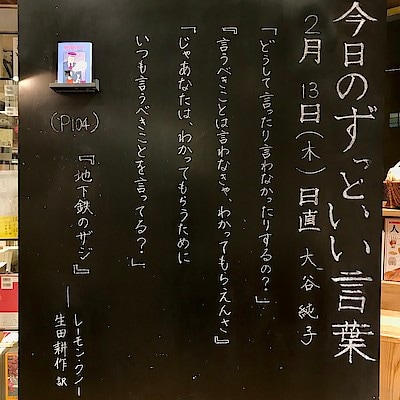 今日のずっといい言葉
2月13日(木)日直 大谷純子
「どうして言ったり言わなかったりするの?」
『言うべきことは言わなきゃ、わかってもらえんさ』
「じゃあなたは、わかってもらうために
いつも言うべきことを言ってる?」
(P104)
『地下鉄のザジ』
レーモン・クノー
生田耕作 訳